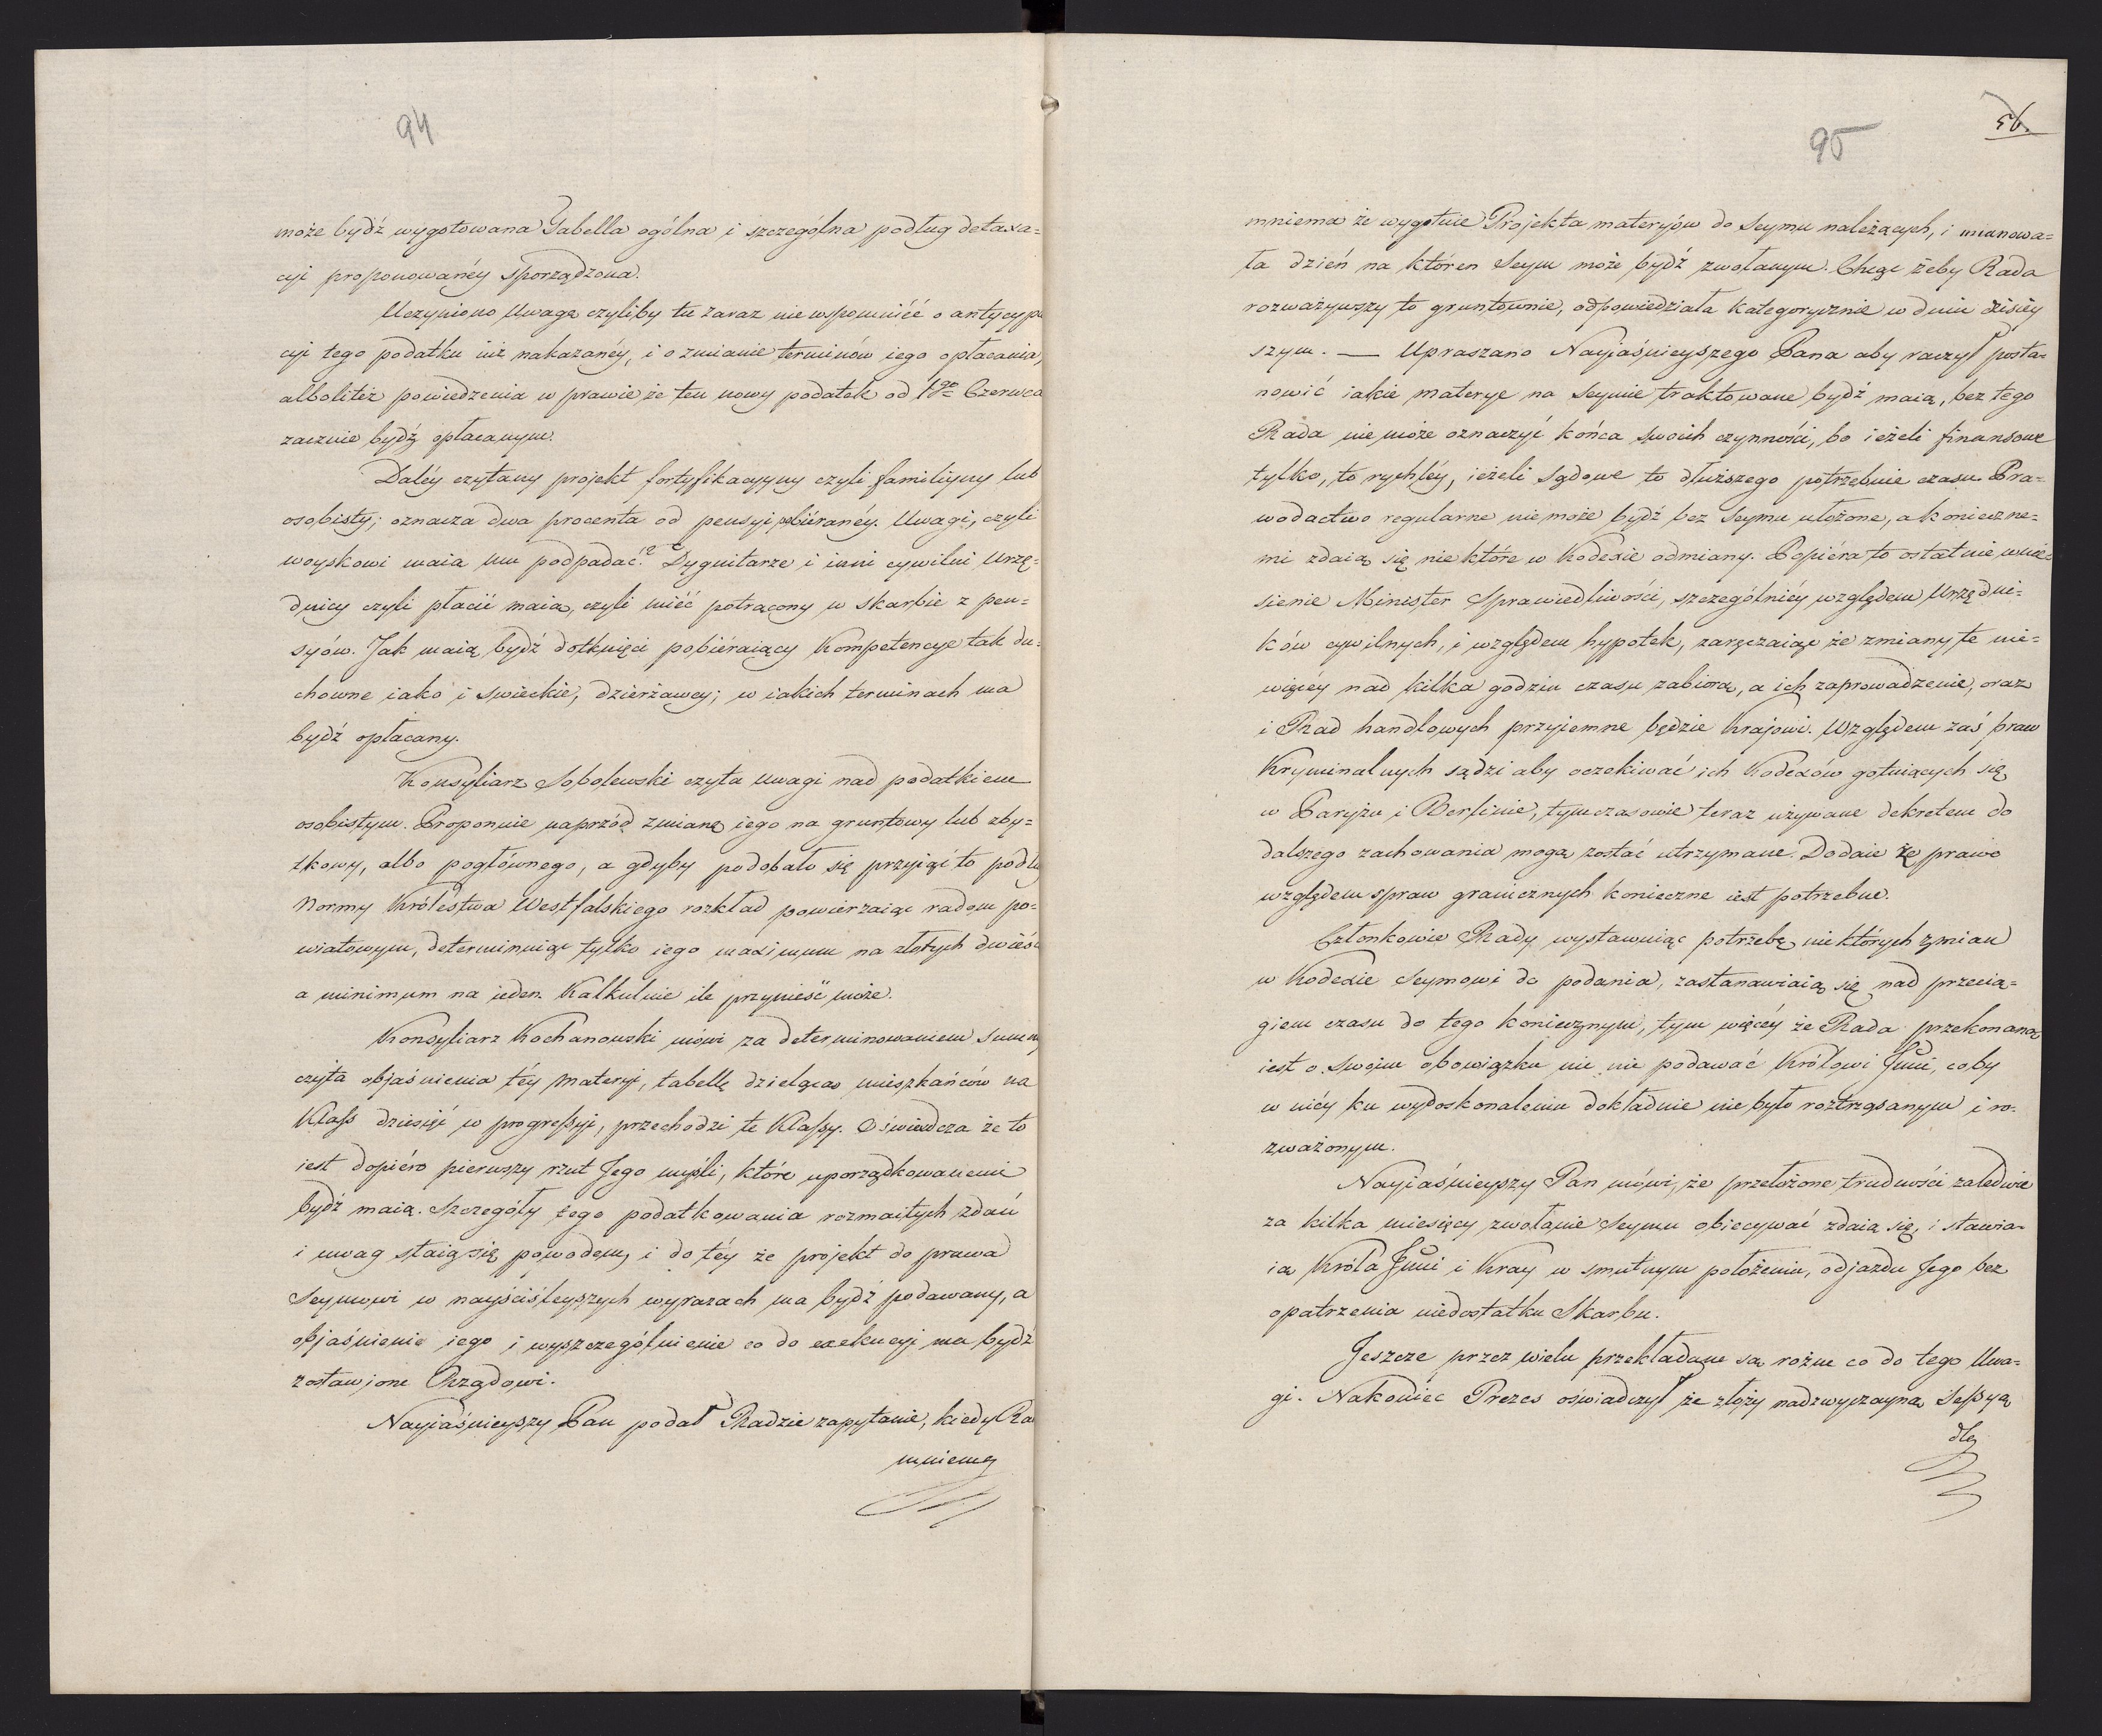 94
może bydź wygotowana Tabella ogólna i szczególna podług detaxa=
cyi proponowanéy sporządzona.
Uczyniono Uwagę czyliby tu zaraz nie wspomnićć o antycypa
cyi tego podatku iuż nakazanéy, i o zmianie terminów iego opłacania,
albolitéż powiedzenia w prawie że ten nowy podatek od 1go Czerwca
zacznie bydź opłacanym.
Daléy czytany projekt fortyfikacyyny czyli familiyny lub
osobisty; oznacza dwa procenta od pensyi pobiéranéy. Uwagi, czyli
woyskowi maią mu podpadać? Dygnitarze i inni cywilni Urzę=
dnicy czyli płacić maią, czyli mićć potrącony w skarbie z pen=
syów. Jak maią bydź dotknięci pobiéraiący Kompetencye tak du=
chowne iako i swieckie, dzierżawcy; w iakich terminach ma
bydź opłacany.
Konsyliarz Sobolewski czyta uwagi nad podatkiem
osobistym. Proponuie naprzód zmianę iego na gruntowy lub zby=
tkowy, albo pogłównego, a gdyby podobało się przyiąć to podłu
Normy Królestwa Westfalskiego rozkład powierzaiąc radom po=
wiatowym, determinuiąc tylko iego maximum na złotych dwieśc
a minimum na ieden. Kalkuluie ile przynieść może.
Konsyliarz Kochanowski mówi za determinowaniem summy
czyta objaśnienia téy materyi, tabellę dzielącą mieszkańców na
Klass dziesięć w progressyi, przechodzi te Klassy. Oświadcza że to
iest dopiéro pierwszy rzut Jego myśli, które uporządkowanemi
bydź maią. Szczegóły tego podatkowania rozmaitych zdań
i uwag staią się powodem, i do téy że projekt do prawa
Seymowi w nayściśleyszych wyrazach ma bydź podawany, a
objaśnienie iego i wyszczególnienie co do exekucyi ma bydź
zostawione Rządowi.
Nayiaśnieyszy Pan podał Radzie zapytanie, kiedy Ra
mniema
95
56.
mniema że wygotuie Projekta materyów do Seymu należących, i mianowa=
ła dzień na któren Seym może bydź zwołanym. Chcąc żeby Rada
rozważywszy to gruntownie, odpowiedziała kategorycznie w dniu dzisiéy
szym. — Upraszano Nayiaśnieyszego Pana aby raczył posta=
nowić iakie materye na Seymie traktowane bydź maią, bez tego
Rada nie może oznaczyć końca swoich czynności, bo ieżeli finansowe
tylko, to rychléy, ieżeli sądowe to dłuższego potrzebuie czasu. Pra=
wodactwo regularne nie może bydź bez Seymu ułożone, a konieczne=
mi zdaią się nie które w Kodexie odmiany. Popiéra to ostatnie wnie=
sienie Minister Sprawiedliwości, szczególniéy względem Urzędni=
ków cywilnych, i względem hypotek, zaręczaiąc że zmiany te nie=
więcéy nad kilka godzin czasu zabiorą, a ich zaprowadzenie, oraz
i Rad handlowych przyiemne będzie Krajowi. Względem zaś praw
Kryminalnych sądzi aby oczekiwać ich Kodexów gotuiących się
w Paryżu i Berlinie, tymczasowie teraz używane dekretem do
dalszego zachowania mogą zostać utrzymane. Dodaie że prawo
względem spraw granicznych konieczne iest potrzebne.
Członkowie Rady wystawuiąc potrzebę niektórych zmian
w Kodexie Seymowi do podania, zastanawiaią się nad przecią=
giem czasu do tego koniecznym, tym więcéy że Rada przekonaną
iest o swoim obowiązku nic nie podawać Królowi Jmci, coby
w niéy ku wydoskonaleniu dokładnie nie było roztrząsanym i ro=
zważonym.
Nayiaśnieyszy Pan mówi, że przełożone trudności zaledwie
za kilka miesięcy zwołanie Seymu obiecywać zdaią się, i stawia=
ią Króla Jmci i Kray w smutnym położeniu, odjazdu Jego bez
opatrzenia niedostatku Skarbu.
Jeszcze przez wielu przekładane są rożne co do tego Uwa=
gi. Nakoniec Prezes oświadczył że złoży nadzwyczayną Sessyą
dla